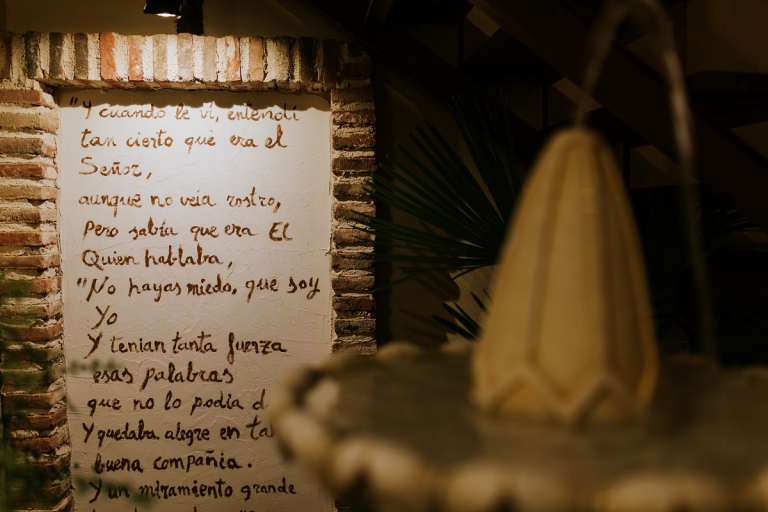 "Y cuando le ví, entendí
tan cierto que era el
Señor,
aunque no veía rostro,
Pero sabía que era EL
Quien hablaba,
"No hayas miedo, que soy
Yo
Y tenían tanta fuerza
esas palabras
que no lo podía
Y quedaba alegre en
buena compañía.
Y un miramiento grande